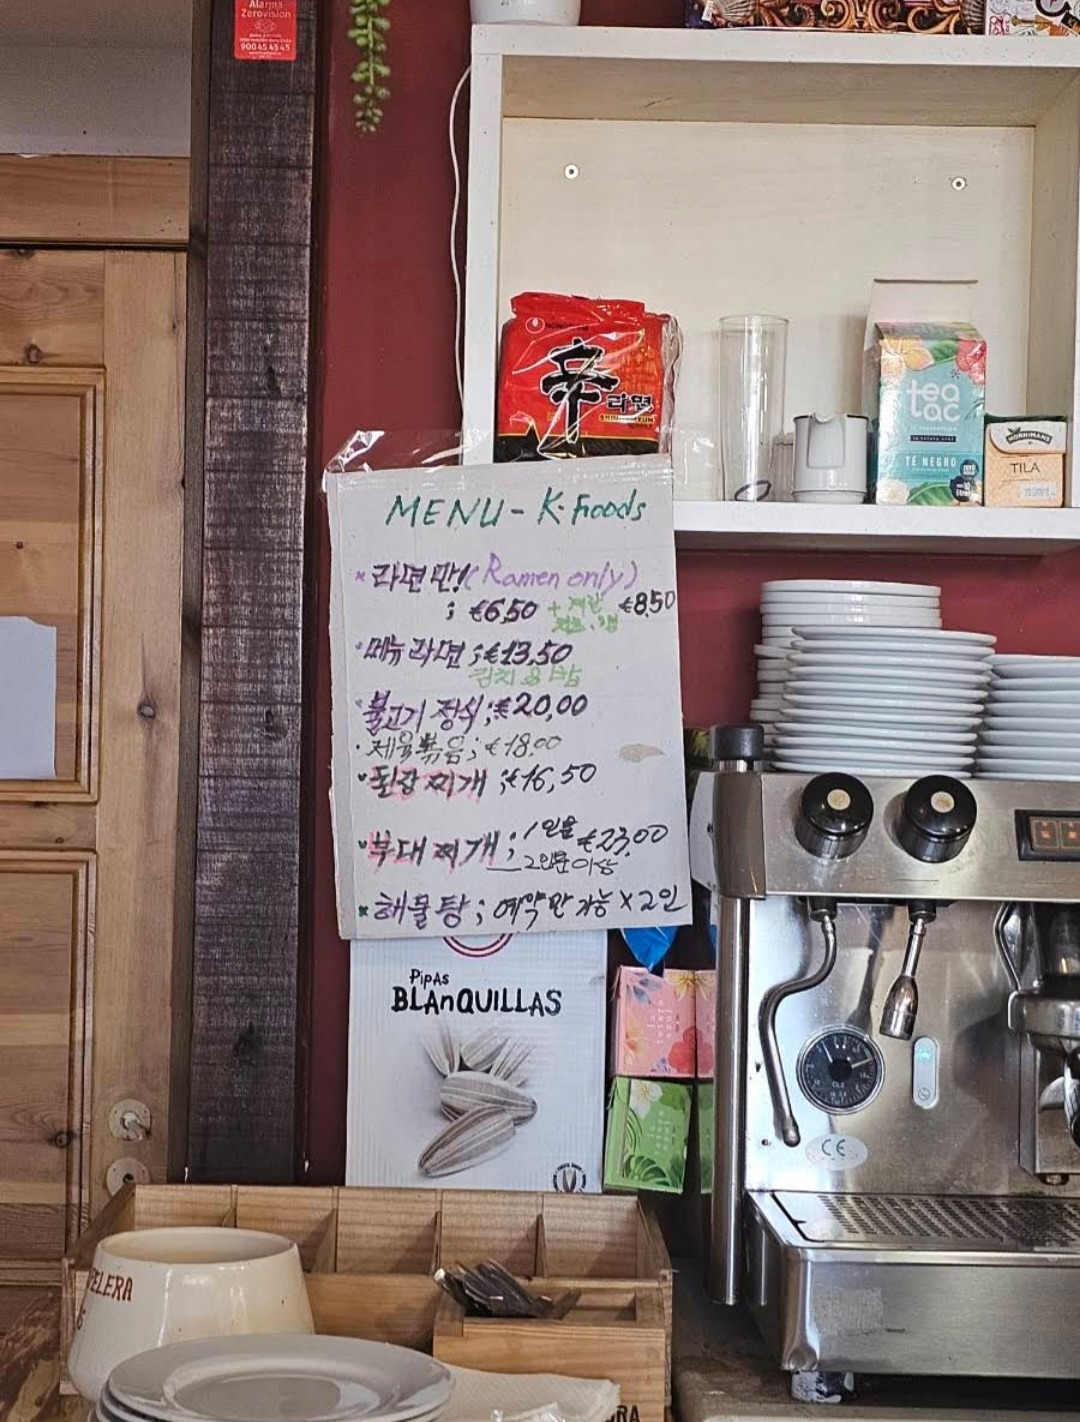 Alarma
Zerovision
900 45 45 45
辛라면
tea
tac
TÉ NEGRO
HORNIMANS
TILA
MENU - K.Foods
* 라면 만! (Ramen only)
; €6,50 + 계란 €8,50
* 메뉴 라면 ; €13,50
김치 & 밥
* 불고기 정식 ; €20,00
· 제육볶음 ; €18,00
· 된장 찌개 ; €16,50
· 부대 찌개 ; 1인분 €23,00
2인분 이상
* 해물탕 ; 예약만 가능 X 2인
PipAs
BLAnQUILLAS
CE